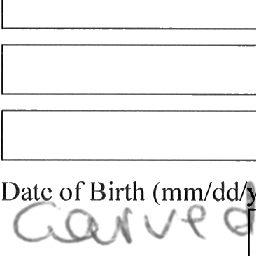 Date of Birth (mm/dd/y
carved